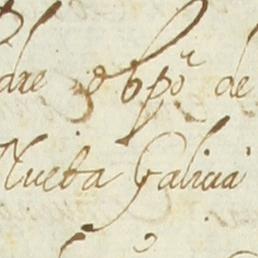 dre obpõ de
Nueba Galicia